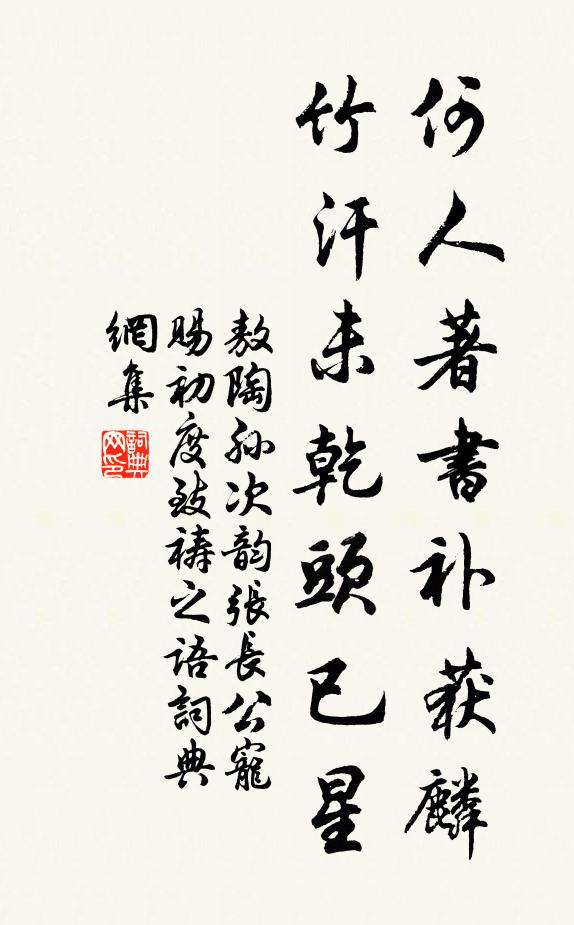 何人著書补获麟
竹汗未乾頭已星
敖陶孙次韵張長公寵
賜初度致祷之語詞典
網集
詞典
网印